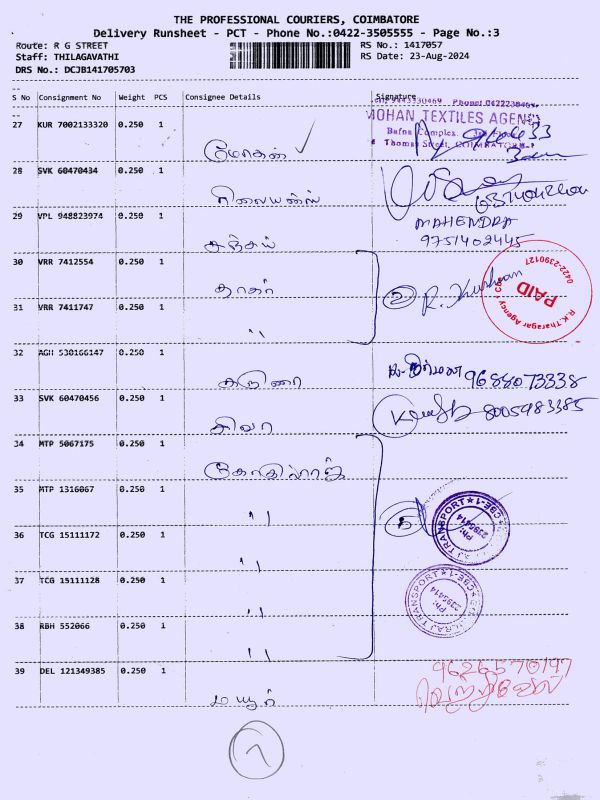 THE PROFESSIONAL COURIERS, COIMBATORE
Delivery Runsheet - PCT - Phone No.:0422-3505555 - Page No.:3
Route: R G STREET
RS No.: 1417057
Staff: THILAGAVATHI
RS Date: 23-Aug-2024
DRS No.: DCJB141705703
S No Consignment No Weight PCS Consignee Details Signature
Phone: 0422230464
MOHAN TEXTILES AGENCY
27 KUR 7002133320 0.250 1
Bafna Complex,
Thomas Street, COIMBATORE-1
மோகன்
28 SVK 60470434 0.250 1
ரிலையன்ஸ்
29 VPL 948823974 0.250 1
MAHENDRA
9751402445
சஞ்சய்
30 VRR 7412554 0.250 1
தாகர்
2 R.
R.K. Tharagar Agency
PAID
0422-2390127
31 VRR 7411747 0.250 1
"
32 AGH 530166147 0.250 1
கருணை
9688073338
33 SVK 60470456 0.250 1
சிவா
8005483385
34 MTP 5067175 0.250 1
கோதில்ராஜ்
35 MTP 1316067 0.250 1
"
5
TRANSPORT ★ CBE-1
Ph:
2395414
36 TCG 15111172 0.250 1
"
37 TCG 15111128 0.250 1
"
TRANSPORT ★ CBE-1
Ph:
2395414
38 RBH 552066 0.250 1
"
39 DEL 121349385 0.250 1
9626570197
வெற்றிவேல்
மயூர்
7